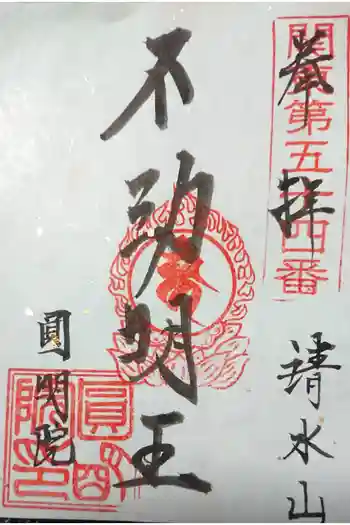 関東第五十四番
奉拝
清水山
不動明王
圓明院
圓明
院印